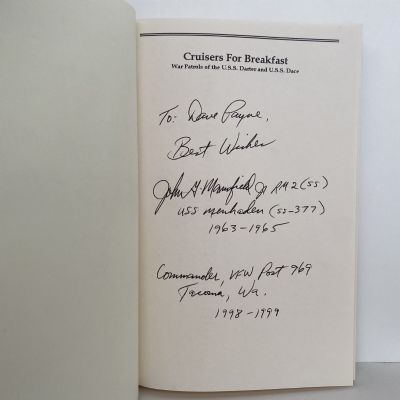 Cruisers For Breakfast
War Patrols of the U.S.S. Darter and U.S.S. Dace
To: Dave Payne,
Best Wishes
John G Mansfield Jr RM2 (SS)
USS Menhaden (SS-377)
1963-1965
Commander, VFW Post 969
Tacoma, Wa.
1998-1999